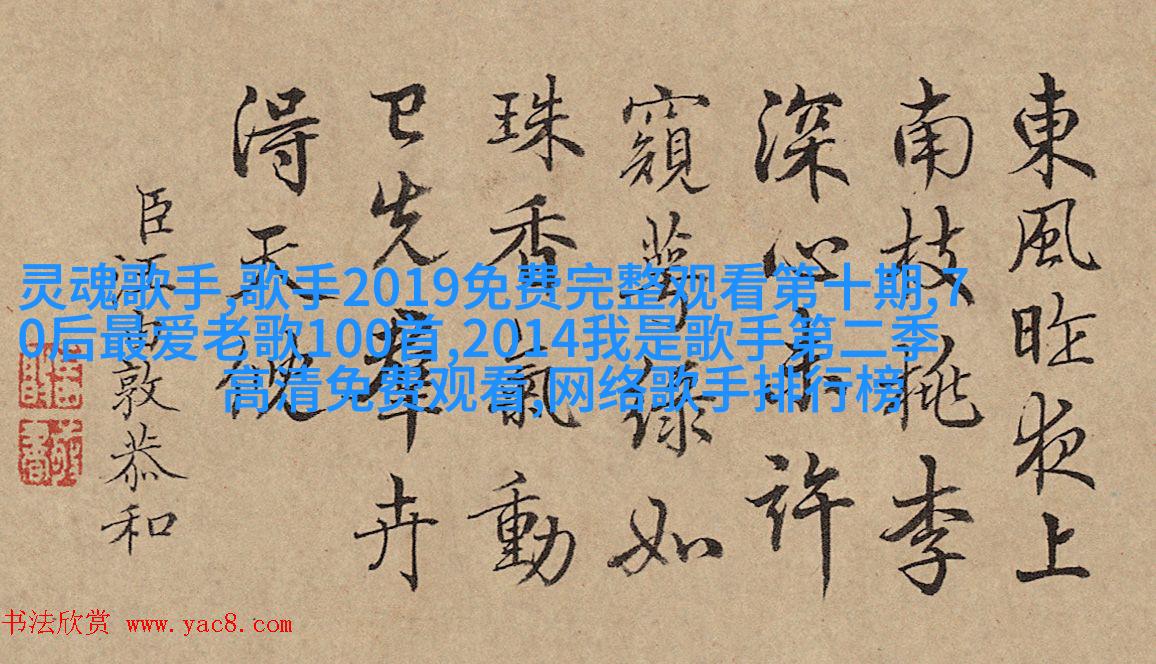 東風昨夜上
南枝桃李
深心許
窺萼綠如
珠香氣動
已先羣卉
得天
臣汪由敦恭和
灵魂歌手,歌手2019免费完整观看第十期,7
0后最爱老歌100首,2014我是歌手第二季
高清免费观看,网络歌手排行榜
书法欣赏 www.yac8.com